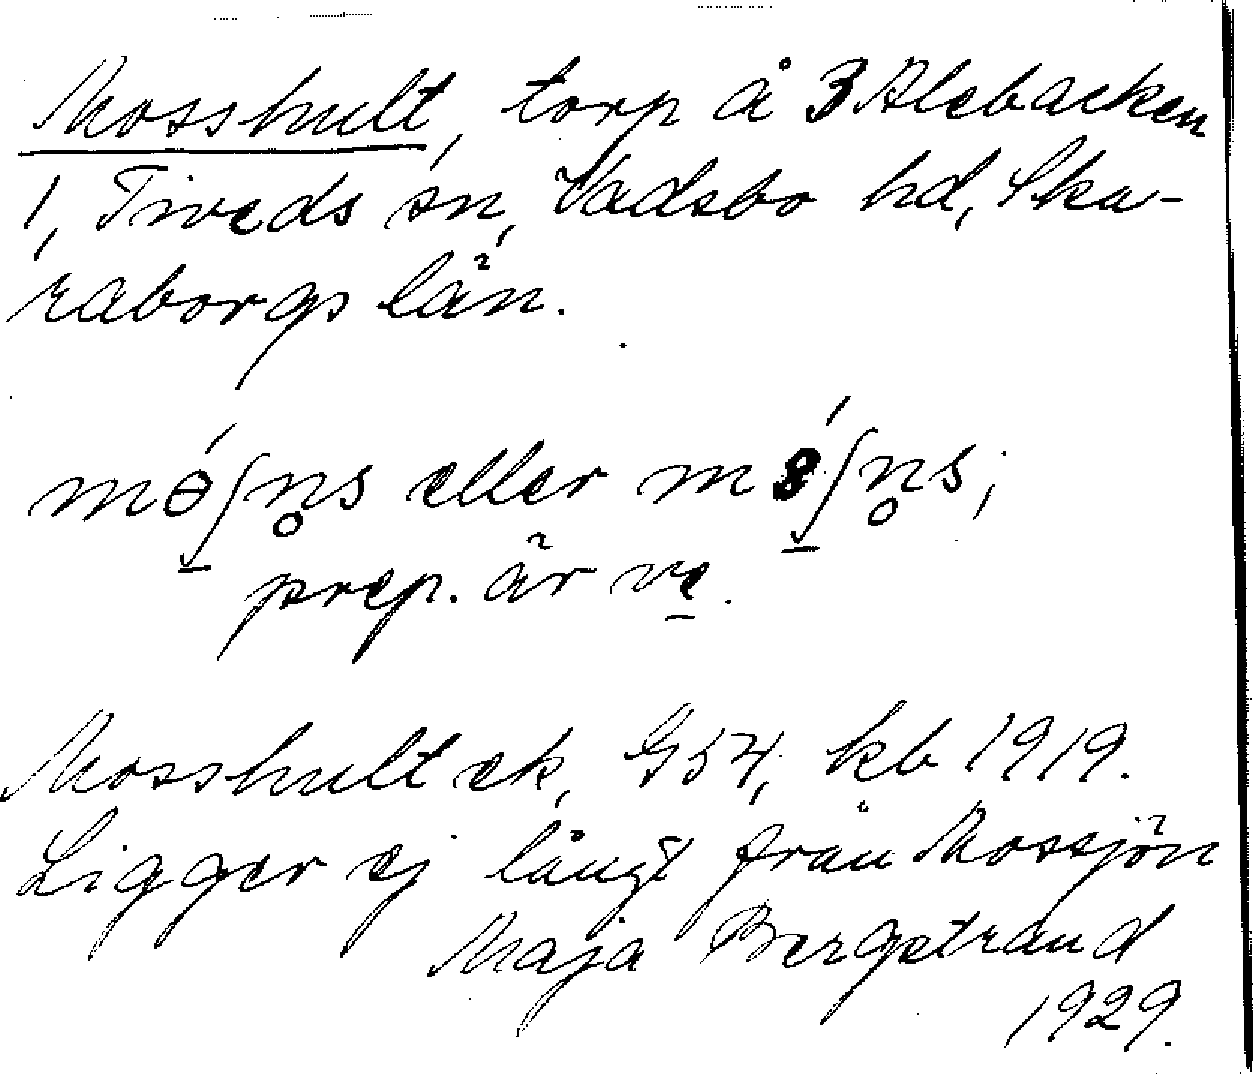 Mosshult, torp å 3 Alebacken
1, Tiveds sn, Vadsbo hd, Ska-
raborgs län.
eller
prep. är ve.
Mosshult ek, G54, kb 1919.
Ligger ej långt från Mossjön
Maja Bergstrand
1929.